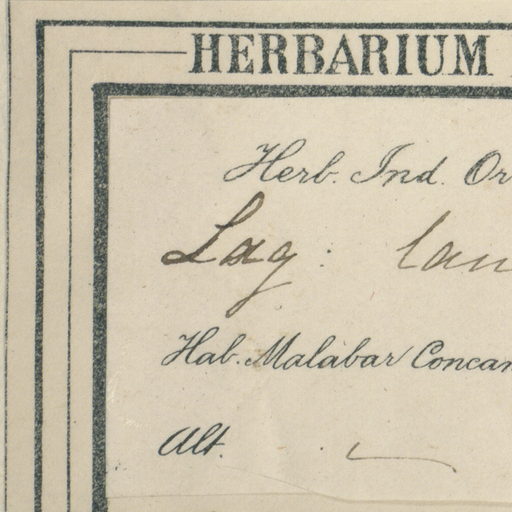 HERBARIUM
Herb. Ind. Or
Lag: lan
Hab. Malabar Concan
Alt.